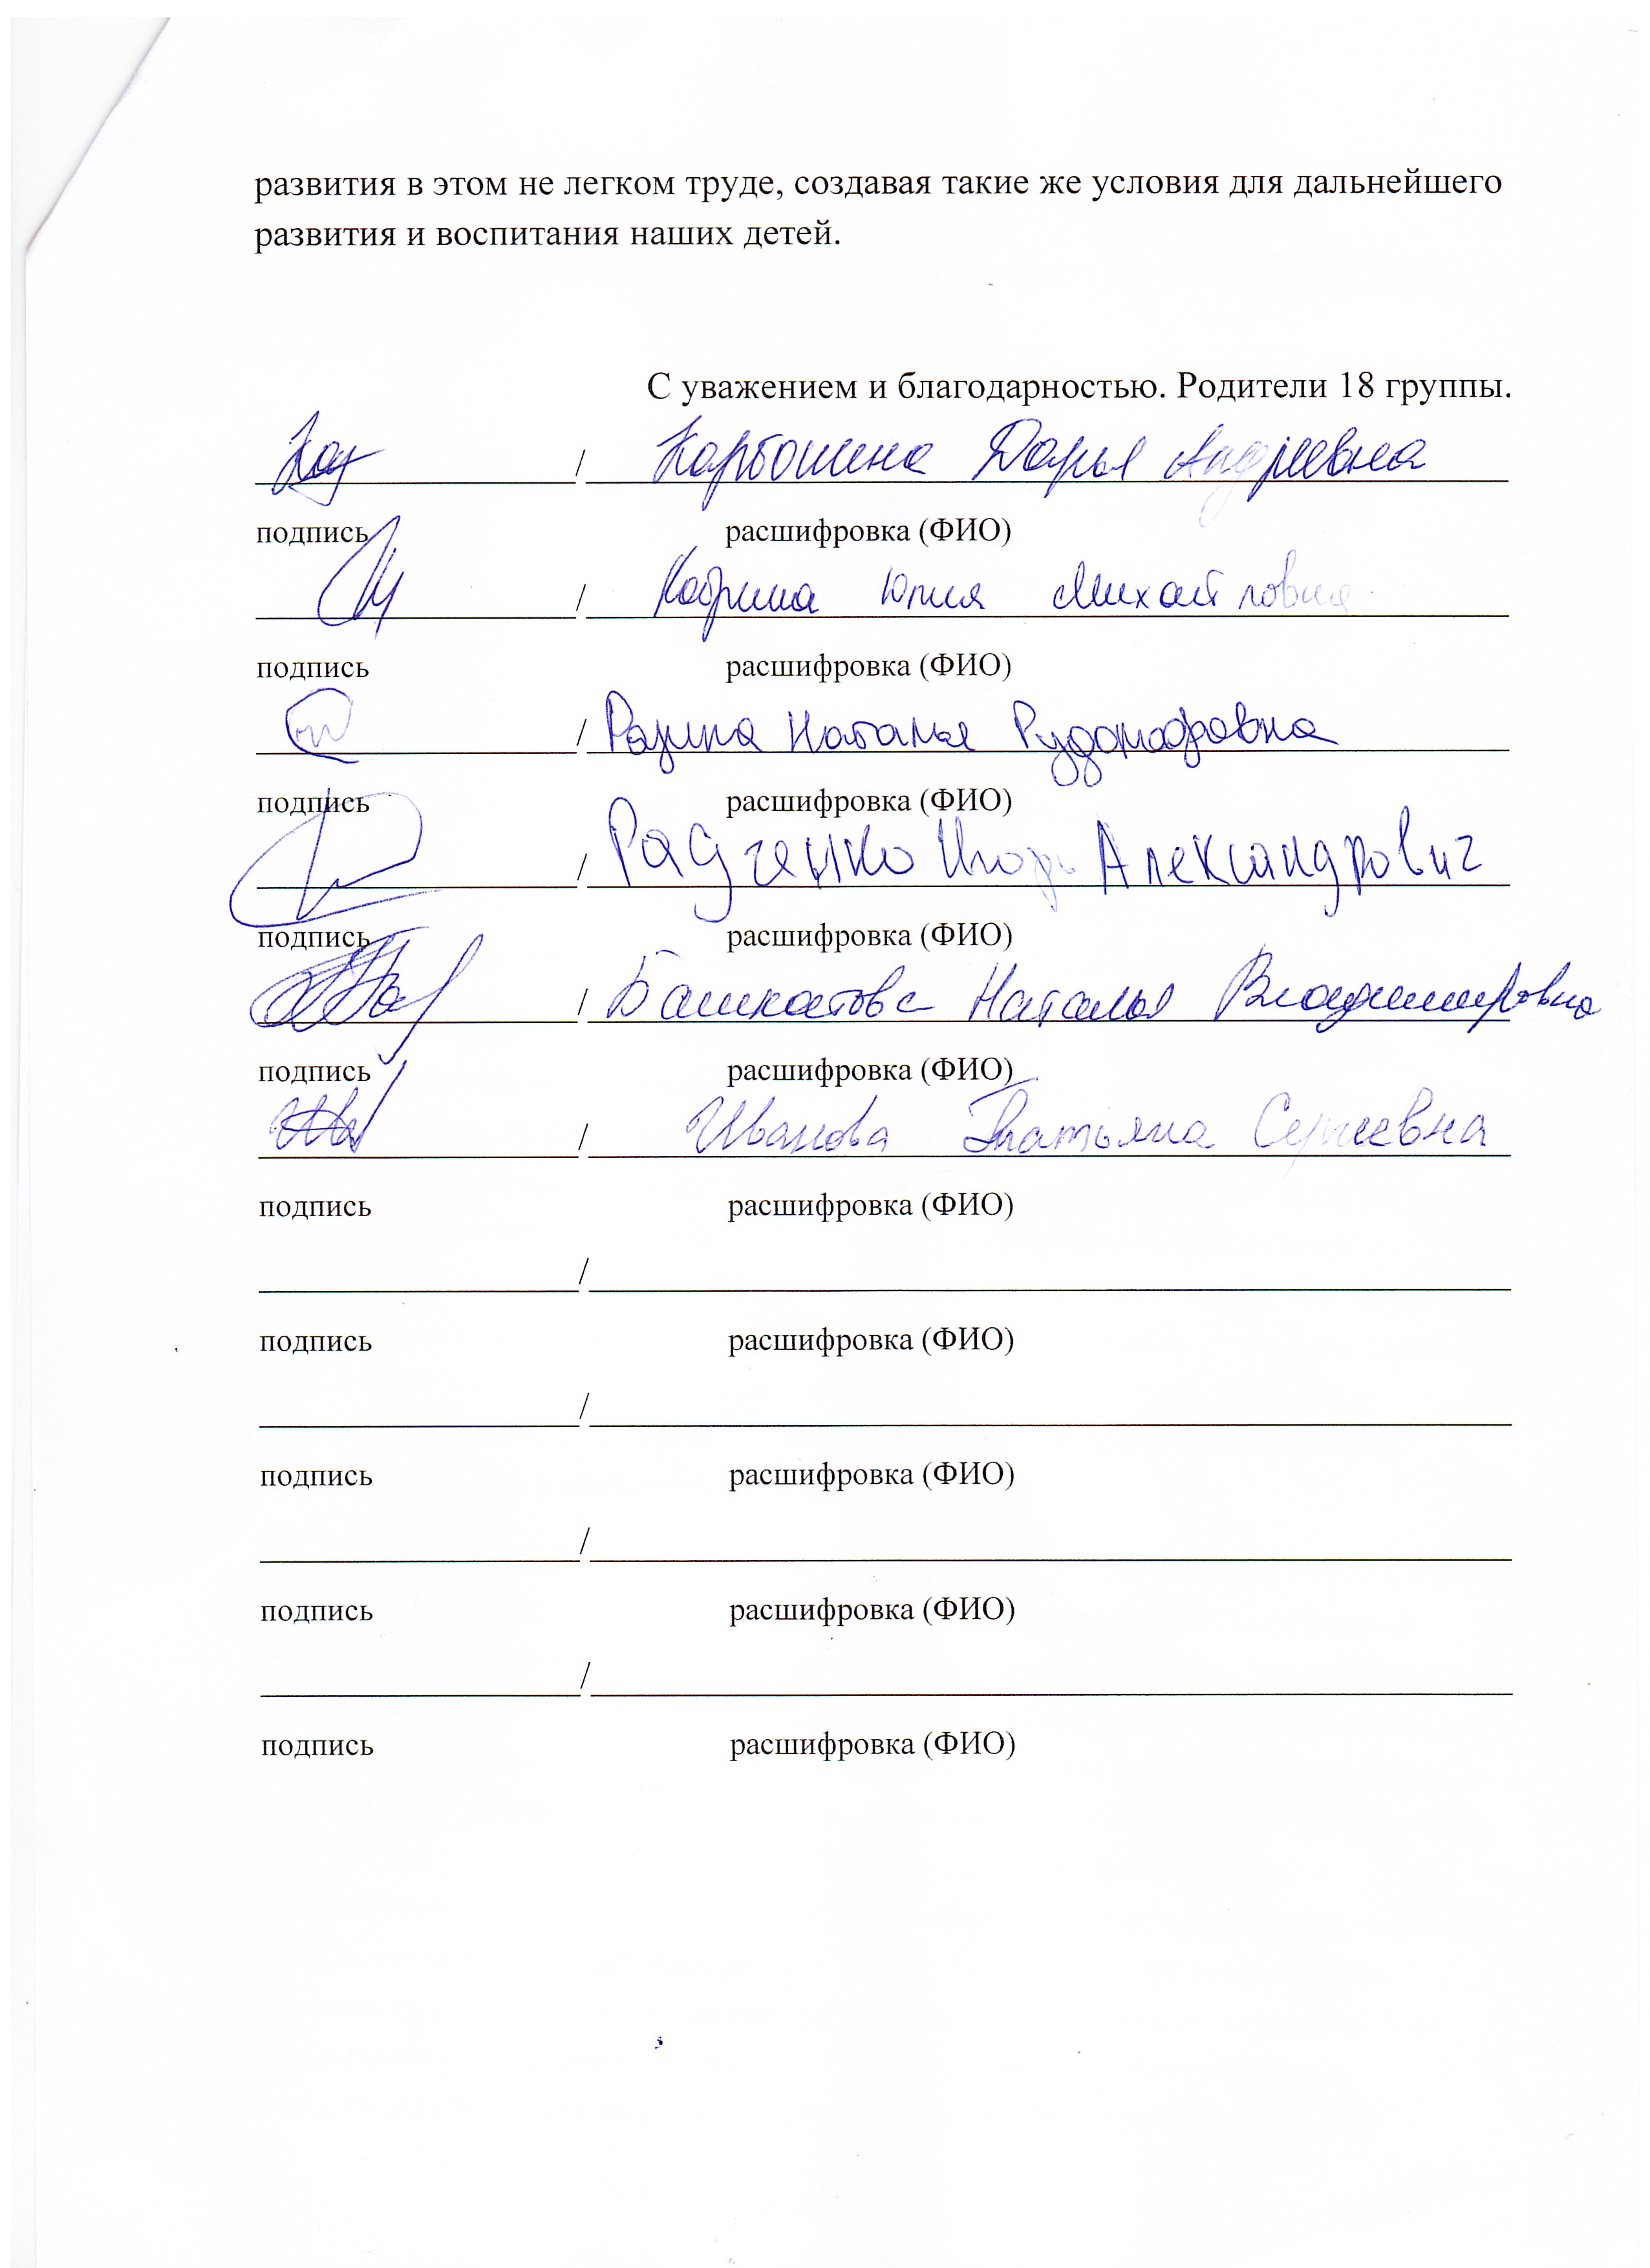 развития в этом не легком труде, создавая такие же условия для дальнейшего
развития и воспитания наших детей.
С уважением и благодарностью. Родители 18 группы.
/ Карбошина Дарья Андреевна
подпись расшифровка (ФИО)
/ Юлия Михайловна
подпись расшифровка (ФИО)
/ Наталья
подпись расшифровка (ФИО)
/ Радченко Игорь Александрович
подпись расшифровка (ФИО)
/ Башкатова Наталья Владимировна
подпись расшифровка (ФИО)
/ Иванова Татьяна Сергеевна
подпись расшифровка (ФИО)
/
подпись расшифровка (ФИО)
/
подпись расшифровка (ФИО)
/
подпись расшифровка (ФИО)
/
подпись расшифровка (ФИО)